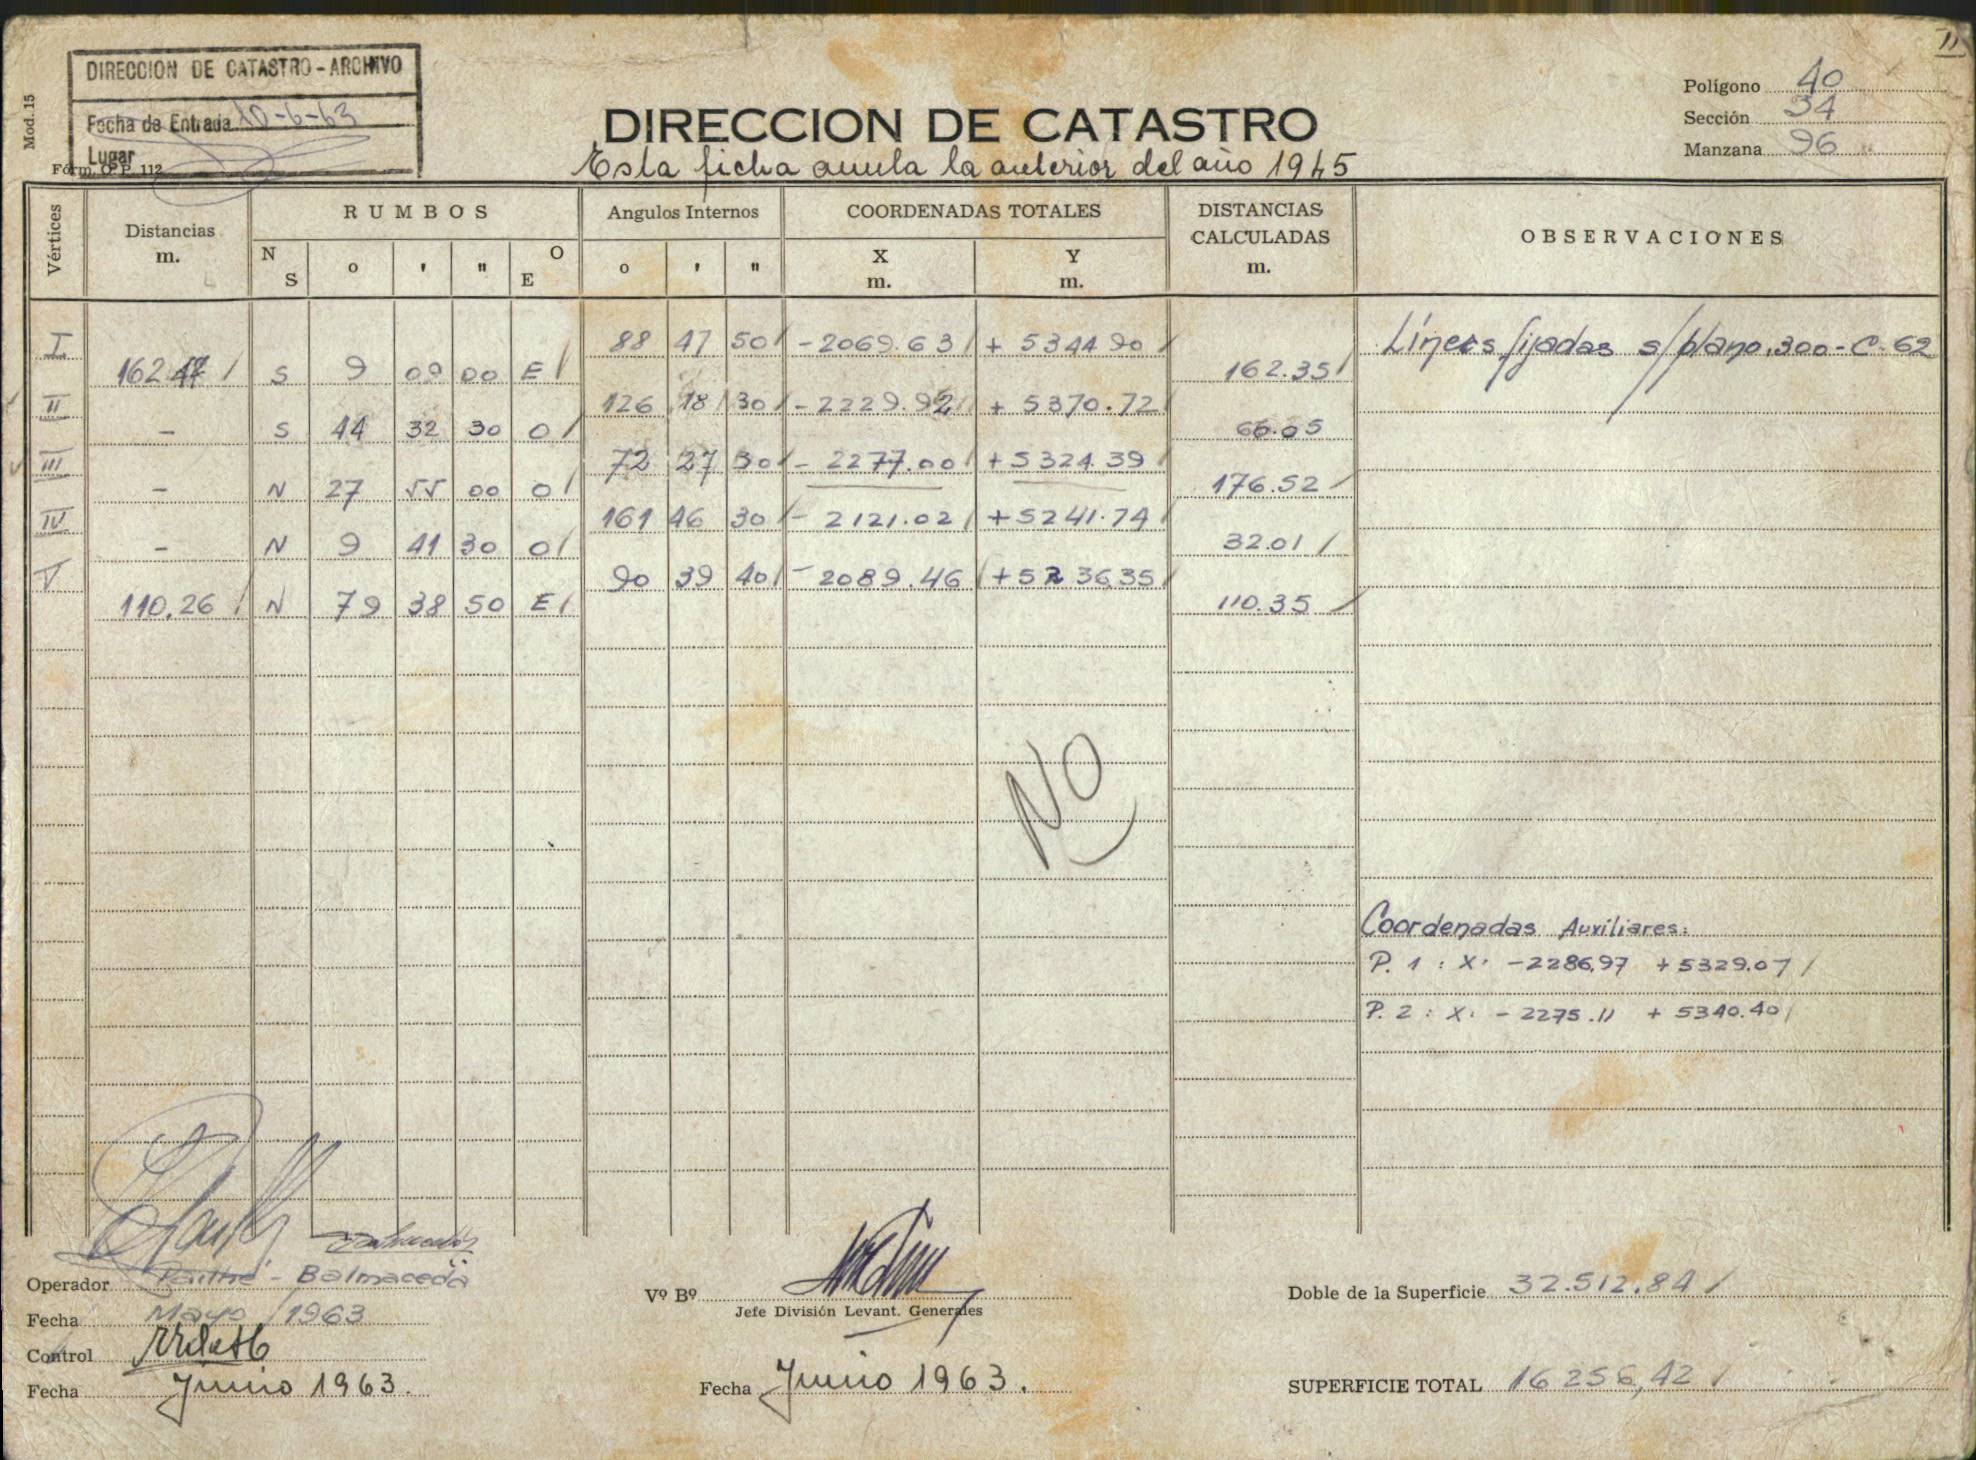 11
DIRECCION DE CATASTRO - ARCHIVO
Fecha de Entrada 10-6-63
Lugar
Mod. 15
Fórm. O. P. 112
DIRECCION DE CATASTRO
Esta ficha anula la anterior del año 1945
Polígono 40
Sección 34
Manzana 96
Vértices Distancias m. RUMBOS Angulos Internos COORDENADAS TOTALES DISTANCIAS CALCULADAS m. OBSERVACIONES
N S o ' " O E o ' " X m. Y m.
I 88 47 50 -2069.63 + 5344 90 Líneas fijadas s/plano.300-C-62
162 S 9 09 00 E 162.35
II 126 18 30 -2229.92 + 5370.72
- S 44 32 30 O 66.05
III 72 27 30 - 2277.00 +5324.39
- N 27 55 00 O 176.52
IV 161 46 30 - 2121.02 +5241.74
- N 9 41 30 O 32.01
V 90 39 40 -2089.46 +5236,35
110.26 N 79 38 50 E 110.35
NO
Coordenadas Auxiliares:
P. 1 : X: -2286,97 +5329.07
P. 2 : X: - 2275.11 + 5340.40
Operador Pailhé - Balmaceda
Fecha Mayo/1963
Control
Fecha Junio 1963.
Vº Bº
Jefe División Levant. Generales
Fecha Junio 1963.
Doble de la Superficie 32.512.84
SUPERFICIE TOTAL 16 256,42